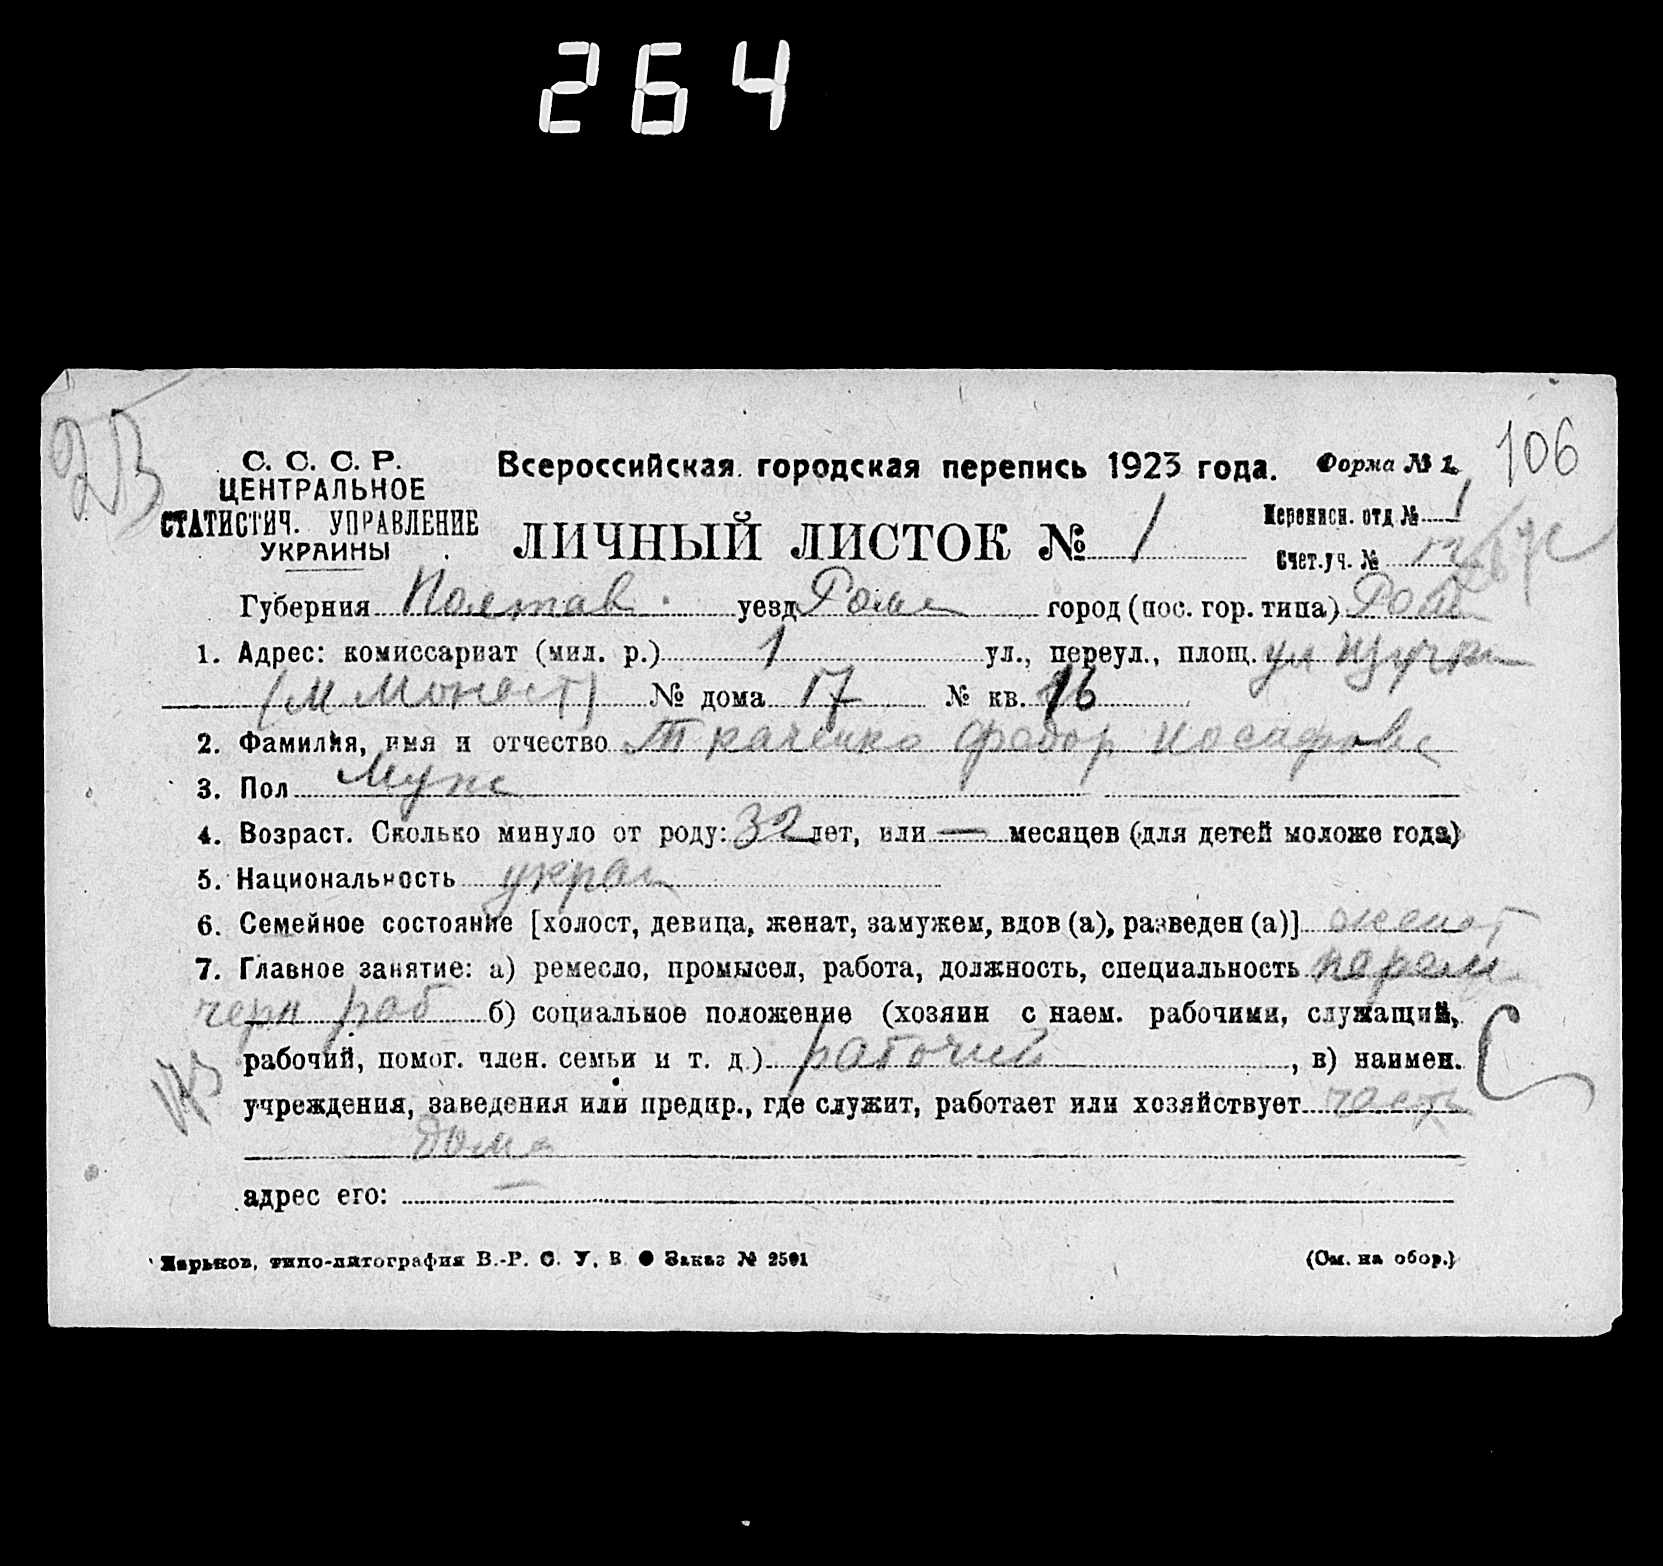 264
106
С. С. С. Р.
ЦЕНТРАЛЬНОЕ
СТАТИСТИЧ. УПРАВЛЕНИЕ
УКРАИНЫ
Всероссийская городская перепись 1923 года. Форма № 1
ЛИЧНЫЙ ЛИСТОК № 1
Переписн. отд № 1
Счет.уч. №
Губерния Полтав. уезд Ромен город (пос. гор. типа) Ромен
1. Адрес: комиссариат (мил. р.) 1 ул., переул., площ. ул
(М Монаст) № дома 17 № кв. 16
2. Фамилия, имя и отчество Ткаченко Федор Иосафович
3. Пол Муж
4. Возраст. Сколько минуло от роду: 32 лет, или — месяцев (для детей моложе года)
5. Национальность украин
6. Семейное состояние [холост, девица, женат, замужем, вдов (а), разведен (а)] женат
7. Главное занятие: а) ремесло, промысел, работа, должность, специальность
черн раб б) социальное положение (хозяин с наем. рабочими, служащий,
рабочий, помог. член. семьи и т. д.) рабочий, в) наимен.
учреждения, заведения или предпр., где служит, работает или хозяйствует частн
дома
адрес его:
Харьков, типо-литография В.-Р. С. У. В. ● Заказ № 2501
(См. на обор.)